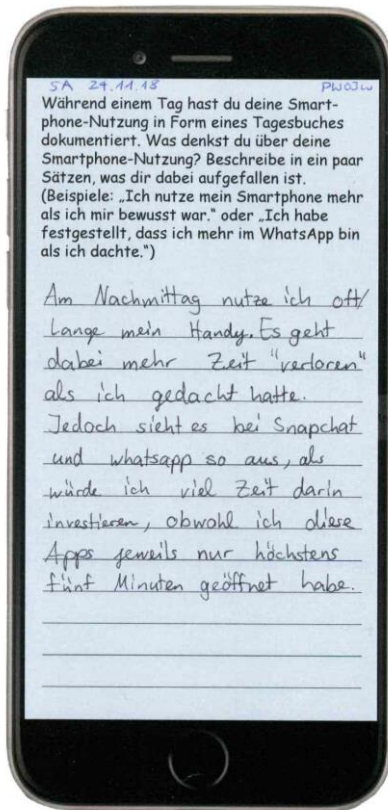 SA 24.11.18 PW03w
Während einem Tag hast du deine Smart-
phone-Nutzung in Form eines Tagesbuches
dokumentiert. Was denkst du über deine
Smartphone-Nutzung? Beschreibe in ein paar
Sätzen, was dir dabei aufgefallen ist.
(Beispiele: „Ich nutze mein Smartphone mehr
als ich mir bewusst war." oder „Ich habe
festgestellt, dass ich mehr im WhatsApp bin
als ich dachte.")
Am Nachmittag nutze ich oft/
lange mein Handy. Es geht
dabei mehr Zeit "verloren"
als ich gedacht hatte.
Jedoch sieht es bei Snapchat
und whatsapp so aus, als
würde ich viel Zeit darin
investieren, obwohl ich diese
Apps jeweils nur höchstens
fünf Minuten geöffnet habe.